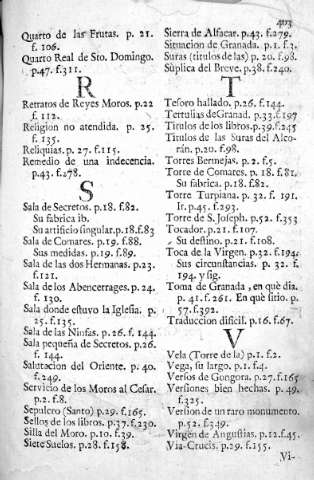 403
Quarto de las Frutas. p. 21.
f. 106.
Quarto Real de Sto. Domingo.
p.47. f.311.
R
Retratos de Reyes Moros. p.22
f. 112.
Religion no atendida. p. 25.
f. 135.
Reliquias. p. 27. f.115.
Remedio de una indecencia.
p.43. f.278.
S
Sala de Secretos. p.18. f.82.
Su fabrica ib.
Su artificio singular.p.18.f.83
Sala de Comares. p.19. f.88.
Sus medidas. p.19. f.89.
Sala de las dos Hermanas. p.23.
f.121.
Sala de los Abencerrages. p.24.
f. 130.
Sala donde estuvo la Iglesia. p.
25. f.135.
Sala de las Ninfas. p.26. f. 144.
Sala pequeña de Secretos. p.26.
f. 144.
Salutacion del Oriente. p. 40.
f.249.
Servicio de los Moros al Cesar.
p.2. f.8.
Sepulcro (Santo) p.29. f.165.
Sellos de los libros. p.37. f.230.
Silla del Moro. p.10. f.39.
Siete Suelos. p.28. f.158.
Sierra de Alfacar. p.43. f.279.
Situacion de Granada. p.1. f.3.
Suras (titulos de las) p. 20. f.98.
Sùplica del Breve. p.38. f.240.
T
Tesoro hallado. p.26. f.144.
Tertulias de Granad. p.33. f.197
Titulos de los libros.p.39.f.245
Titulos de las Suras del Alco-
rán. p.20. f.98.
Torres Bermejas. p.2. f.5.
Torre de Comares. p. 18. f.81.
Su fabrica. p.18. f.82.
Torre Turpiana. p. 32. f. 191.
Ir. p.45. f.293.
Torre de S. Joseph. p.52. f.353
Tocador. p.21. f.107.
Su destino. p.21. f.108.
Toca de la Virgen. p.32. f.194.
Sus circunstancias. p. 32. f.
194. y sig.
Toma de Granada, en què dia.
p.41. f.261. En què sitio. p.
57. f.392.
Traduccion dificil. p.16. f.67.
V
Vela (Torre de la) p.1. f.2.
Vega, su largo. p.1. f.4.
Versos de Gongora. p.27. f.165
Versiones bien hechas. p.49.
f.325.
Version de un raro monumento.
p.52. f.349.
Virgen de Angustias. p.12. f.45.
Via-Crucis. p.29. f.155.
Vi-